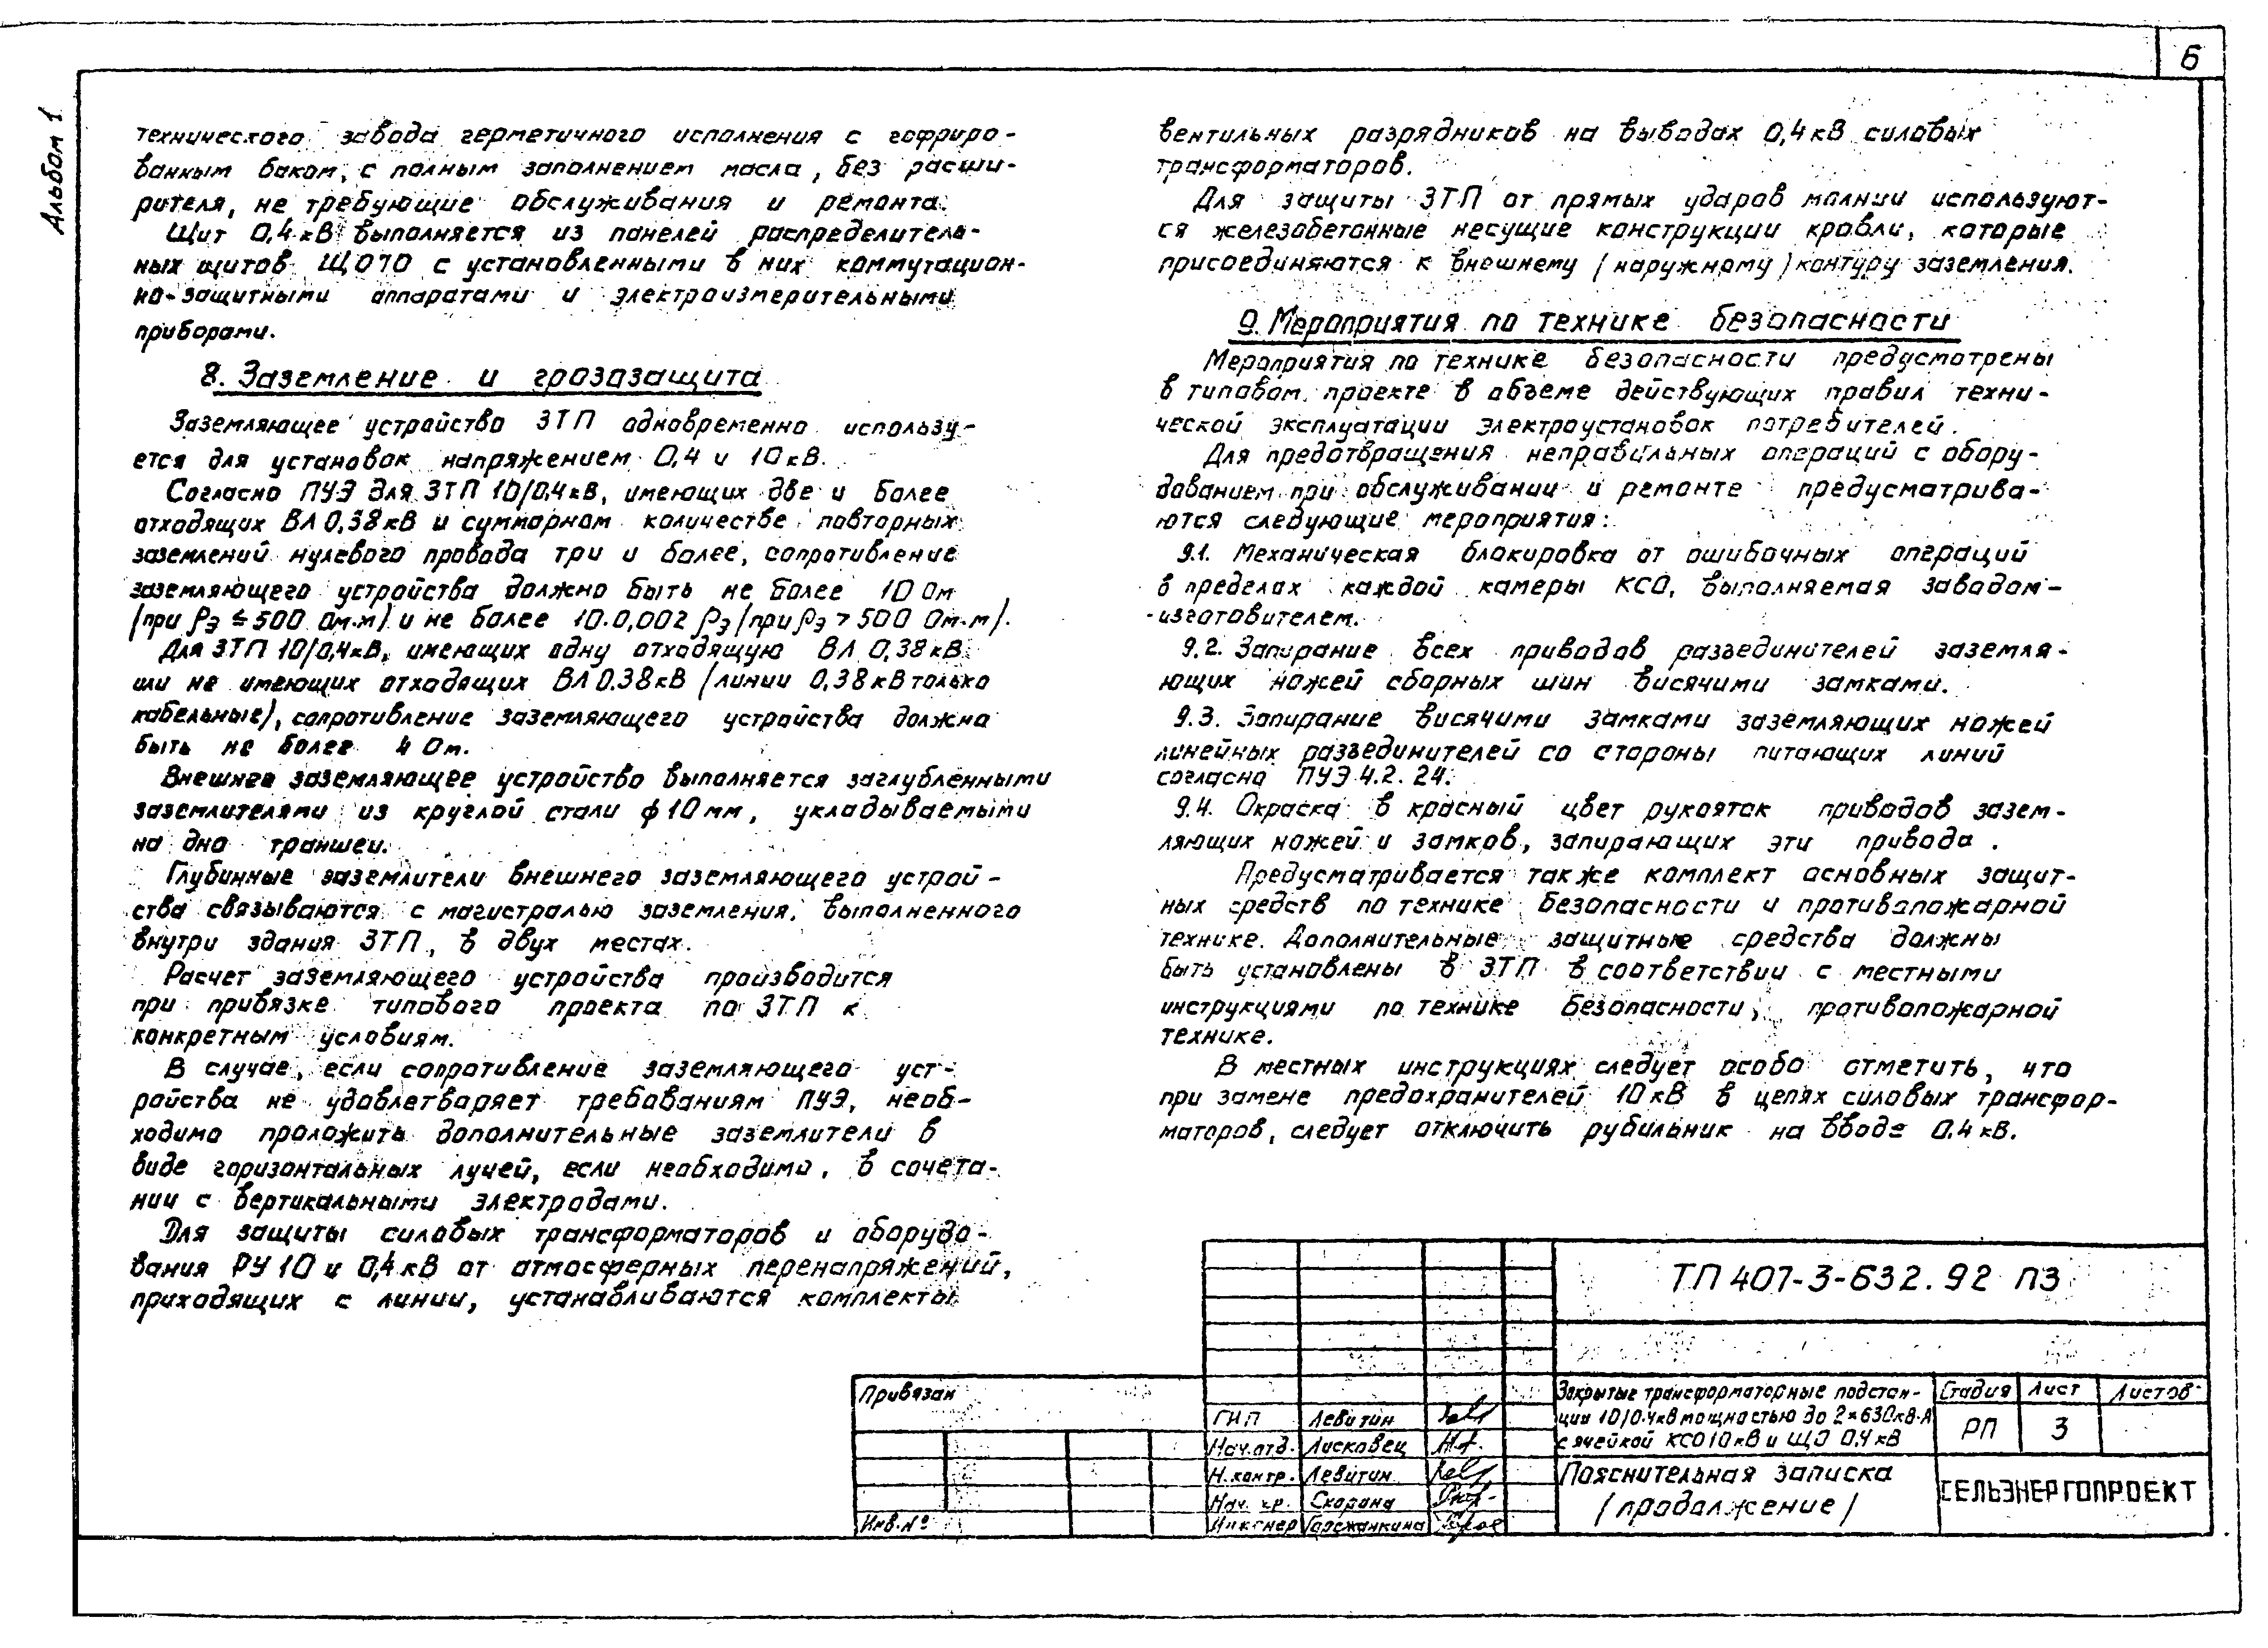 6
Альбом 1
технического завода герметичного исполнения с гофриро-
ванным баком, с полным заполнением масла, без расши-
рителя, не требующие обслуживания и ремонта.
Щит 0,4 кВ выполняется из панелей распределитель-
ных щитов ЩО70 с установленными в них коммутацион-
но-защитными аппаратами и электроизмерительными
приборами.
8. Заземление и грозозащита
Заземляющее устройство ЗТП одновременно использу-
ется для установок напряжением 0,4 и 10 кВ.
Согласно ПУЭ для ЗТП 10/0,4кВ, имеющих две и более
отходящих ВЛ 0,38 кВ и суммарном количестве повторных
заземлений нулевого провода три и более, сопротивление
заземляющего устройства должно быть не более 10 Ом
/при ρэ ≤ 500 Ом·м/ и не более 10·0,002 ρэ /при ρэ > 500 Ом·м/.
Для ЗТП 10/0,4кВ, имеющих одну отходящую ВЛ 0,38 кВ
или не имеющих отходящих ВЛ 0.38 кВ /линии 0,38 кВ только
кабельные), сопротивление заземляющего устройства должна
быть не более 4 Ом.
Внешнее заземляющее устройство выполняется заглубленными
заземлителями из круглой стали ф 10 мм, укладываемыми
на дно траншеи.
Глубинные заземлители внешнего заземляющего устрой-
ства связываются с магистралью заземления, выполненного
внутри здания ЗТП, в двух местах.
Расчет заземляющего устройства производится
при привязке типового проекта по ЗТП к
конкретным условиям.
В случае, если сопротивление заземляющего уст-
ройства не удовлетворяет требованиям ПУЭ, необ-
ходимо проложить дополнительные заземлители в
виде горизонтальных лучей, если необходимо, в сочета-
нии с вертикальными электродами.
Для защиты силовых трансформаторов и оборудо-
вания РУ 10 и 0,4 кВ от атмосферных перенапряжений,
приходящих с линии, устанавливаются комплекты
вентильных разрядников на выводах 0,4 кВ силовых
трансформаторов.
Для защиты ЗТП от прямых ударов молнии использует-
ся железобетонные несущие конструкции кровли, которые
присоединяются к внешнему /наружному/ контуру заземления.
9. Мероприятия по технике безопасности
Мероприятия по технике безопасности предусмотрены
в типовом проекте в объеме действующих правил техни-
ческой эксплуатации электроустановок потребителей.
Для предотвращения неправильных операций с обору-
дованием при обслуживании и ремонте предусматрива-
ются следующие мероприятия:
9.1. Механическая блокировка от ошибочных операций
в пределах каждой камеры КСО, выполняемая заводом-
-изготовителем.
9.2. Запирание всех приводов разъединителей заземля-
ющих ножей сборных шин висячими замками.
9.3. Запирание висячими замками заземляющих ножей
линейных разъединителей со стороны питающих линий
согласно ПУЭ 4.2.24.
9.4. Окраска в красный цвет рукояток приводов зазем-
ляющих ножей и замков, запирающих эти привода.
Предусматривается также комплект основных защит-
ных средств по технике безопасности и противопожарной
технике. Дополнительные защитные средства должны
быть установлены в ЗТП в соответствии с местными
инструкциями по технике безопасности, противопожарной
технике.
В местных инструкциях следует особо отметить, что
при замене предохранителей 10 кВ в цепях силовых трансфор-
маторов, следует отключить рубильник на вводе 0.4 кВ.
ТП 407-3-632.92 ПЗ
Привязан
Инв.№
ГИП Левитин
Нач.отд. Лисковец
Н.контр. Левитин
Нач. гр. Скорина
Инженер Горожанкина
Закрытые трансформаторные подстан-
ции 10/0.4кВ мощностью до 2×630кВ·А
с ячейкой КСО10кВ и ЩО 0.4 кВ
Стадия Лист Листов
РП 3
Пояснительная записка
/продолжение/
СЕЛЬЭНЕРГОПРОЕКТ